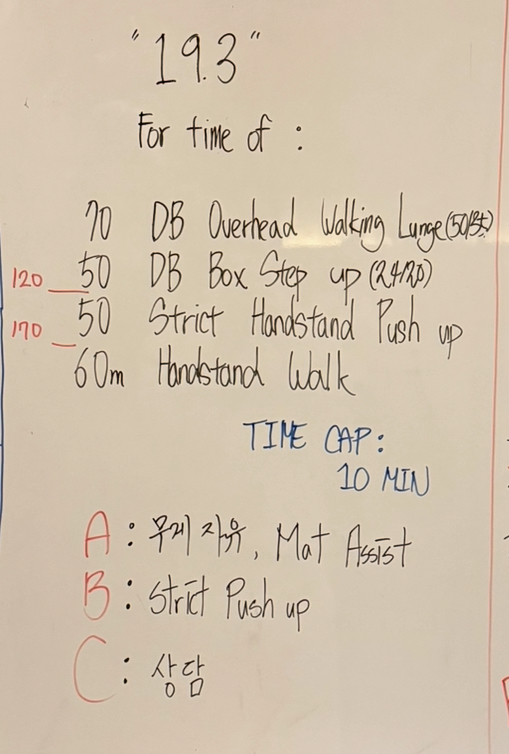 "19.3"
For time of :
70 DB Overhead Walking Lunge (50/35)
120 50 DB Box Step up (24/20)
170 50 Strict Handstand Push up
60m Handstand Walk
TIME CAP:
10 MIN
A : 무게 자유, Mat Assist
B : Strict Push up
C : 상담